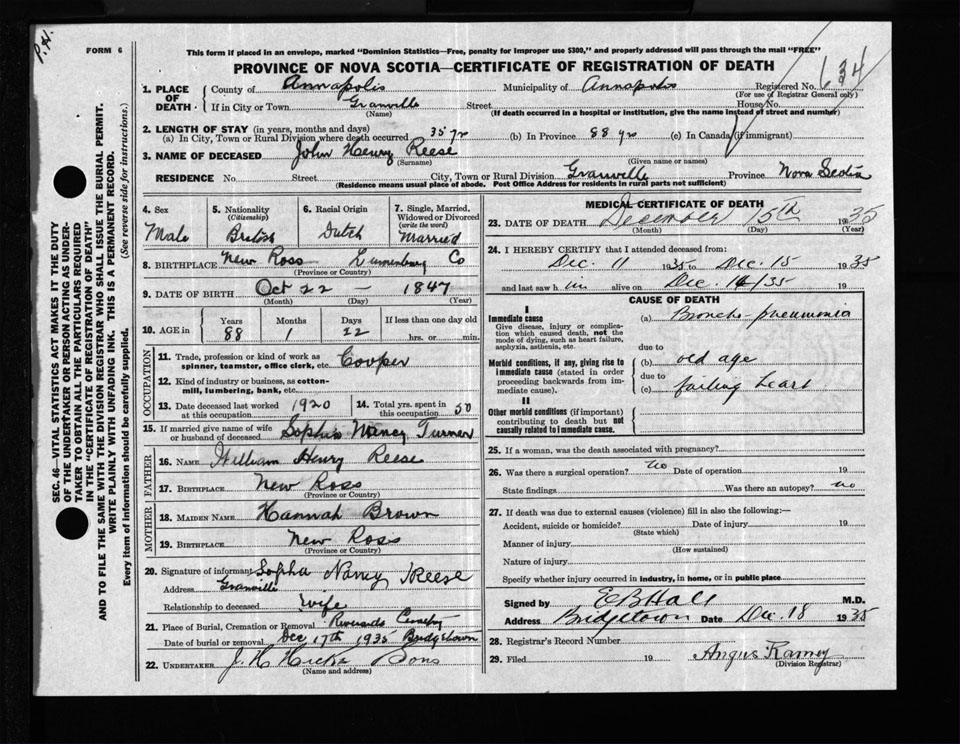 P.H.
FORM 6
This form if placed in an envelope, marked "Dominion Statistics—Free, penalty for improper use $300," and properly addressed will pass through the mail "FREE"
PROVINCE OF NOVA SCOTIA—CERTIFICATE OF REGISTRATION OF DEATH
1. PLACE OF DEATH County of Annapolis Municipality of Annapolis Registered No.
(For use of Registrar General only)
If in City or Town Granville Street House No.
(Name) (If death occurred in a hospital or institution, give the name instead of street and number)
2. LENGTH OF STAY (in years, months and days)
(a) In City, Town or Rural Division where death occurred 35 yrs (b) In Province 88 yrs (c) In Canada (if immigrant)
3. NAME OF DECEASED John Henry Reese
(Surname) (Given name or names)
RESIDENCE No. Street City, Town or Rural Division Granville Province Nova Scotia
(Residence means usual place of abode. Post Office Address for residents in rural parts not sufficient)
4. Sex Male
5. Nationality (Citizenship) British
6. Racial Origin Dutch
7. Single, Married, Widowed or Divorced (write the word) Married
8. BIRTHPLACE New Ross Lunenburg Co
(Province or Country)
9. DATE OF BIRTH Oct 22 — 1847
(Month) (Day) (Year)
10. AGE in Years 88 Months 1 Days 22 If less than one day old hrs. or min.
OCCUPATION
11. Trade, profession or kind of work as spinner, teamster, office clerk, etc. Cooper
12. Kind of industry or business, as cotton-mill, lumbering, bank, etc.
13. Date deceased last worked at this occupation 1920
14. Total yrs. spent in this occupation 50
15. If married give name of wife or husband of deceased Sophia Nancy Turner
FATHER
16. NAME William Henry Reese
17. BIRTHPLACE New Ross
(Province or Country)
MOTHER
18. MAIDEN NAME Hannah Brown
19. BIRTHPLACE New Ross
(Province or Country)
20. Signature of informant Sopha Nancy Reese
Address Granville
Relationship to deceased wife
21. Place of Burial, Cremation or Removal Riverside Cemetry
Date of burial or removal Dec 17th 1935 Bridgetown
22. UNDERTAKER J. H. Hicks Sons
(Name and address)
MEDICAL CERTIFICATE OF DEATH
23. DATE OF DEATH December 15th 1935
(Month) (Day)
24. I HEREBY CERTIFY that I attended deceased from:
Dec. 11 1935 to Dec. 15 1935
and last saw h im alive on Dec. 14/35 19
CAUSE OF DEATH
I
Immediate cause
Give disease, injury or complication which caused death, not the mode of dying, such as heart failure, asphyxia, asthenia, etc.
(a) Broncho-pneumonia
due to
Morbid conditions, if any, giving rise to immediate cause (stated in order proceeding backwards from immediate cause).
(b) old age
due to
(c) failing heart
II
Other morbid conditions (if important) contributing to death but not causally related to immediate cause.
25. If a woman, was the death associated with pregnancy?
26. Was there a surgical operation? no Date of operation 19
State findings Was there an autopsy? no
27. If death was due to external causes (violence) fill in also the following:—
Accident, suicide or homicide? Date of injury 19
(State which)
Manner of injury
(How sustained)
Nature of injury
Specify whether injury occurred in industry, in home, or in public place
Signed by E B Hall M.D.
Address Bridgetown Date Dec. 18 1935
28. Registrar's Record Number
29. Filed 19 Angus Ramey
(Division Registrar)
SEC. 46—VITAL STATISTICS ACT MAKES IT THE DUTY
OF THE UNDERTAKER OR PERSON ACTING AS UNDER-
TAKER TO OBTAIN ALL THE PARTICULARS REQUIRED
IN THE "CERTIFICATE OF REGISTRATION OF DEATH"
AND TO FILE THE SAME WITH THE DIVISION REGISTRAR WHO SHALL ISSUE THE BURIAL PERMIT.
WRITE PLAINLY WITH UNFADING INK. THIS IS A PERMANENT RECORD.
Every item of information should be carefully supplied. (See reverse side for instructions.)